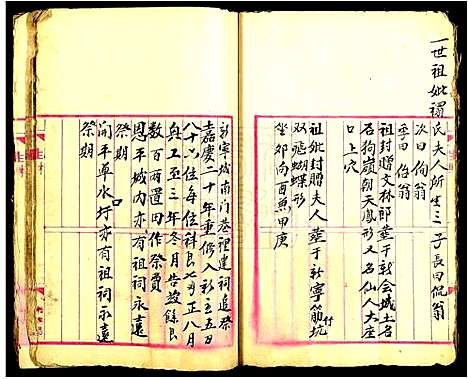 一世祖妣禤氏夫人所生三子長曰侃翁
次曰恂翁
季曰伯翁
祖封贈文林郎葬于新会城土名
石狗嶺朝天鳳形又名仙人大座
口上穴
祖妣封贈夫人葬于新寧筋坑
双飛蝴蝶形
坐卯向酉兼甲庚
新寧城南门巷裡建祠追祭
嘉慶二十年重修入新主五日
八十六位每位祥良七両正八月
兴工至三年冬月告竣餘良
数百両置田作祭費
恩平城内亦有祖祠永遠
祭期
開平單水圩亦有祖祠永遠
祭期